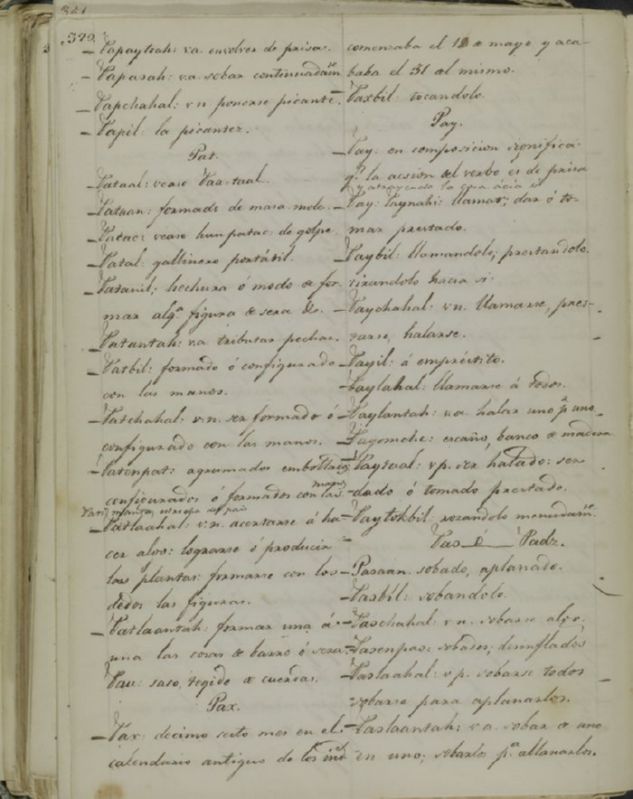 321
322
Papaytah: va envolver de prisa.
Paparah: va sobar continuadam.te
Papchahal: vn ponerse picante.
Papil: la picantez.
Pat.
Pataal: vease
Patac: vease hunpatac: de golpe
Patal: gallinero portátil.
hechura ó modo de for
mar alg.a figura de cera &c.
Patantah: va tributar pechar.
Patbil: formado ó configurado
con las manos.
Patchahal: v.n. ser formado ó
configurado con las manos.
Patenpat: agrumados
configurados ó formados con las
manos
Patlaahal: v.n. acertarse á ha
cer algo: lograrse ó producir
las plantas: formarse con los
dedos las figuras.
Patlaantah: formar una á
una las cosas de barro ó cera
Pau: saco, tegido de cuerdas.
Pax.
Páx: decimo sexto mes en el
calendario antiguo de los
comenzaba el 12 de mayo y aca-
baba el 31 del mismo.
Paxbil: tocandolo.
Pay.
Pay: en composicion significa
q.e la accion del verbo es de prisa
y atrayendo la cosa ácia si
Pay: Paynahi: llamar; dar ó to-
mar prestado.
Paybil: llamandolo; prestandolo.
tirandolo hacia si.
Paychahal: v.n. llamarse, pres-
tarse, halarse.
Payil: á empréstito.
Paylahal: llamarse á todos.
Paylantah: v.a. halar uno p.r uno.
escaño, banco de madera
v.p. ser halado: ser
dado ó tomado prestado.
rozandolo menudam.te
Pas Padz.
Pasaan. sobado, aplanado.
Pasbil: sobandolo.
Paschahal: v.n. sobarse algo.
Pasenpas: sobados, desinflados
Paslaahal: v.p. sobarse todos
sobarse para aplanarlos.
Paslaantah: v.a. sobar de uno
en uno; sobarlos p.a allanarlos.